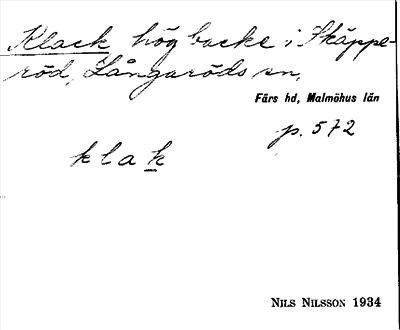 Klack hög backe i Skäppe-
röd, Långaröds sn,
Färs hd, Malmöhus län
p. 572
klak
NILS NILSSON 1934